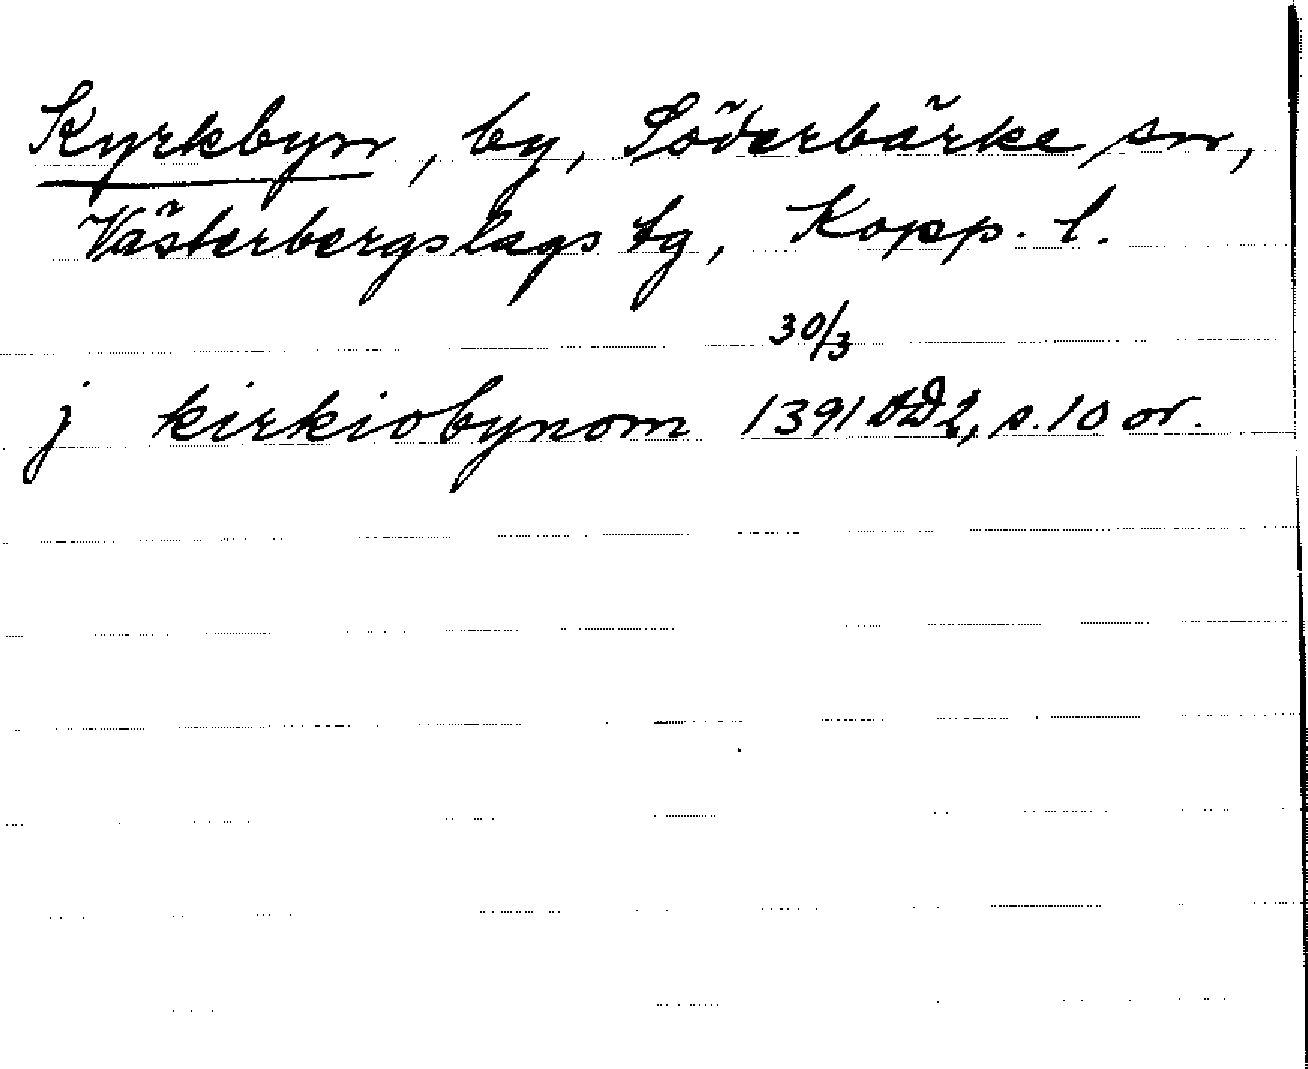 Kyrkbyn, by, Söderbärke sn,
Västerbergslags tg, Kopp. l.
30/3
j kirkiobynom 1391 DD2, s. 10 or.